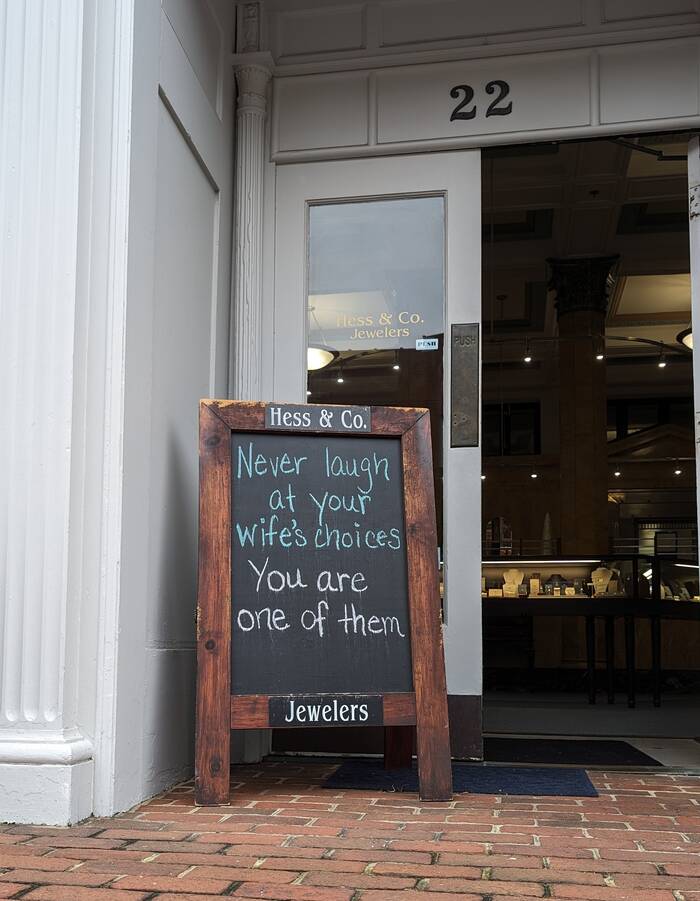 22
Hess & Co.
Jewelers
PUSH
PUSH
Hess & Co.
Never laugh
at your
wife's choices
You are
one of them
Jewelers